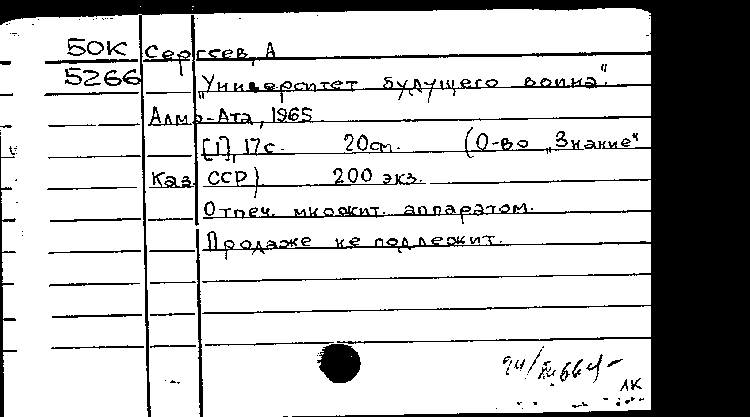 БОК Сергеев, А
5266 „Университет будущего воина“.
Алма-Ата, 1965
[1], 17с. 20см. (О-во „Знание“
Каз ССР) 200 экз.
Отпеч. множит. аппаратом.
Продаже не подлежит.
ЛК